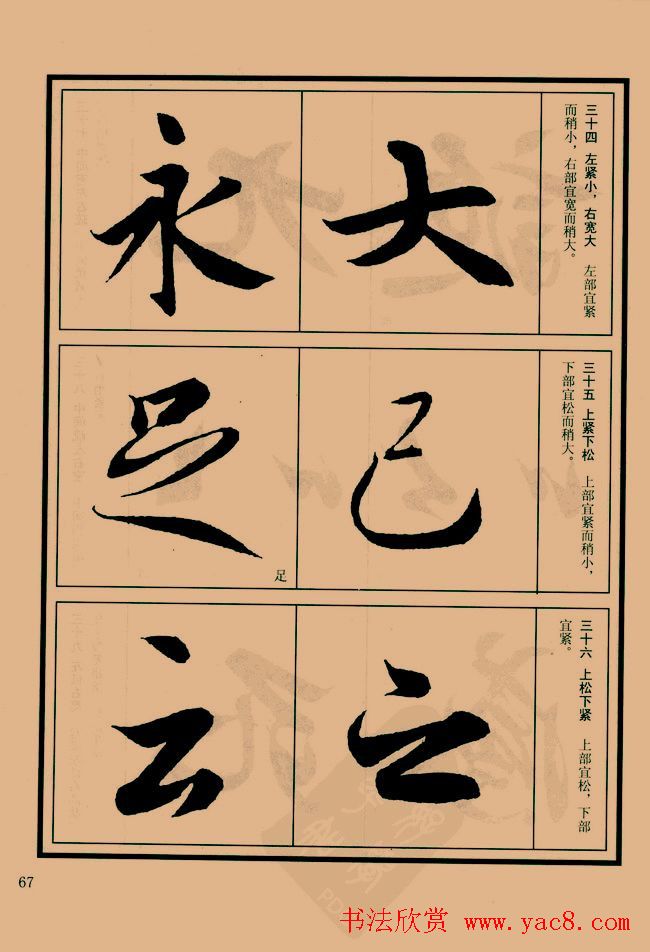 三十四 左紧小，右宽大 左部宜紧
而稍小，右部宜宽而稍大。
大
永
三十五 上紧下松 上部宜紧而稍小，
下部宜松而稍大。
已
足
足
三十六 上松下紧 上部宜松，下部
宜紧。
之
云
67
书法欣赏 www.yac8.com